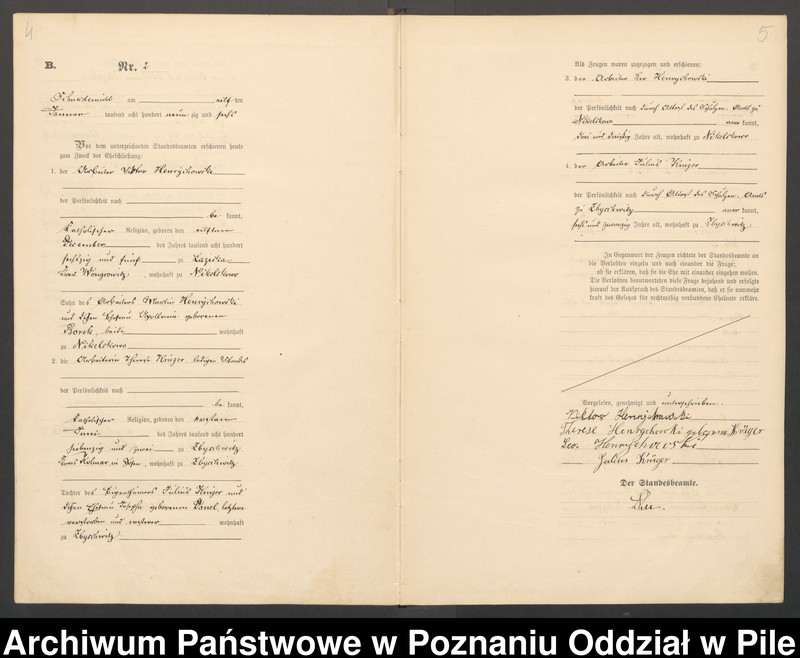 4
B. Nr. 2
Schneidemühl am elften
Januar tausend acht hundert neunzig und sechs
Vor dem unterzeichneten Standesbeamten erschienen heute
zum Zweck der Eheschließung:
1. der Arbeiter Viktor Henrychowski
der Persönlichkeit nach
be kannt,
katholischer Religion, geboren den
December des Jahres tausend acht hundert
sechszig und fünf zu Laziska
Kreis Wongrowitz, wohnhaft zu Nikelskowo
Sohn des Arbeiters Martin Henrychowski
und dessen Ehefrau Apollonia geborenen
Borek, beide wohnhaft
zu Nikelskowo
2. die Arbeiterin Therese Krüger ledigen Standes
der Persönlichkeit nach
be kannt,
katholischer Religion, geboren den ersten
Juni des Jahres tausend acht hundert
siebenzig und zwei zu Zbyschewitz
Kreis Kolmar in Posen, wohnhaft zu Zbyschewitz
Tochter des Eigenthümers Julius Krüger und
dessen Ehefrau Josepha geborenen Danel, letztere
verstorben und ersterer wohnhaft
zu Zbyschewitz
5
Als Zeugen waren zugezogen und erschienen:
3. der Arbeiter Leo Henrychowski
der Persönlichkeit nach durch Attest des Schulzen-Amts zu
Nikelskowo aner kannt,
drei und dreißig Jahre alt, wohnhaft zu Nikelskowo
4. der Arbeiter Julius Krüger
der Persönlichkeit nach durch Attest des Schulzen-Amts
zu Zbyschewitz aner kannt,
sechs und zwanzig Jahre alt, wohnhaft zu Zbyschewitz
In Gegenwart der Zeugen richtete der Standesbeamte an
die Verlobten einzeln und nach einander die Frage:
ob sie erklären, daß sie die Ehe mit einander eingehen wollen.
Die Verlobten beantworteten diese Frage bejahend und erfolgte
hierauf der Ausspruch des Standesbeamten, daß er sie nunmehr
kraft des Gesetzes für rechtmäßig verbundene Eheleute erkläre.
Vorgelesen, genehmigt und unterschrieben.
Viktor Henrychowski
Therese Henrychowski geborene Krüger
Leo Henrychowski
Julius Krüger
Der Standesbeamte.
Archiwum Państwowe w Poznaniu Oddział w Pile